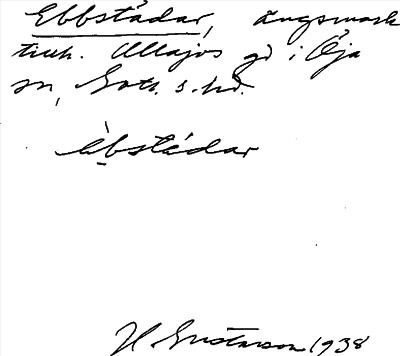 Ebbstädar, ängsmark
tillh. Allajos gd i Öja
sn, Gotl. s. hd.
èbstádar
H Gustavson 1938